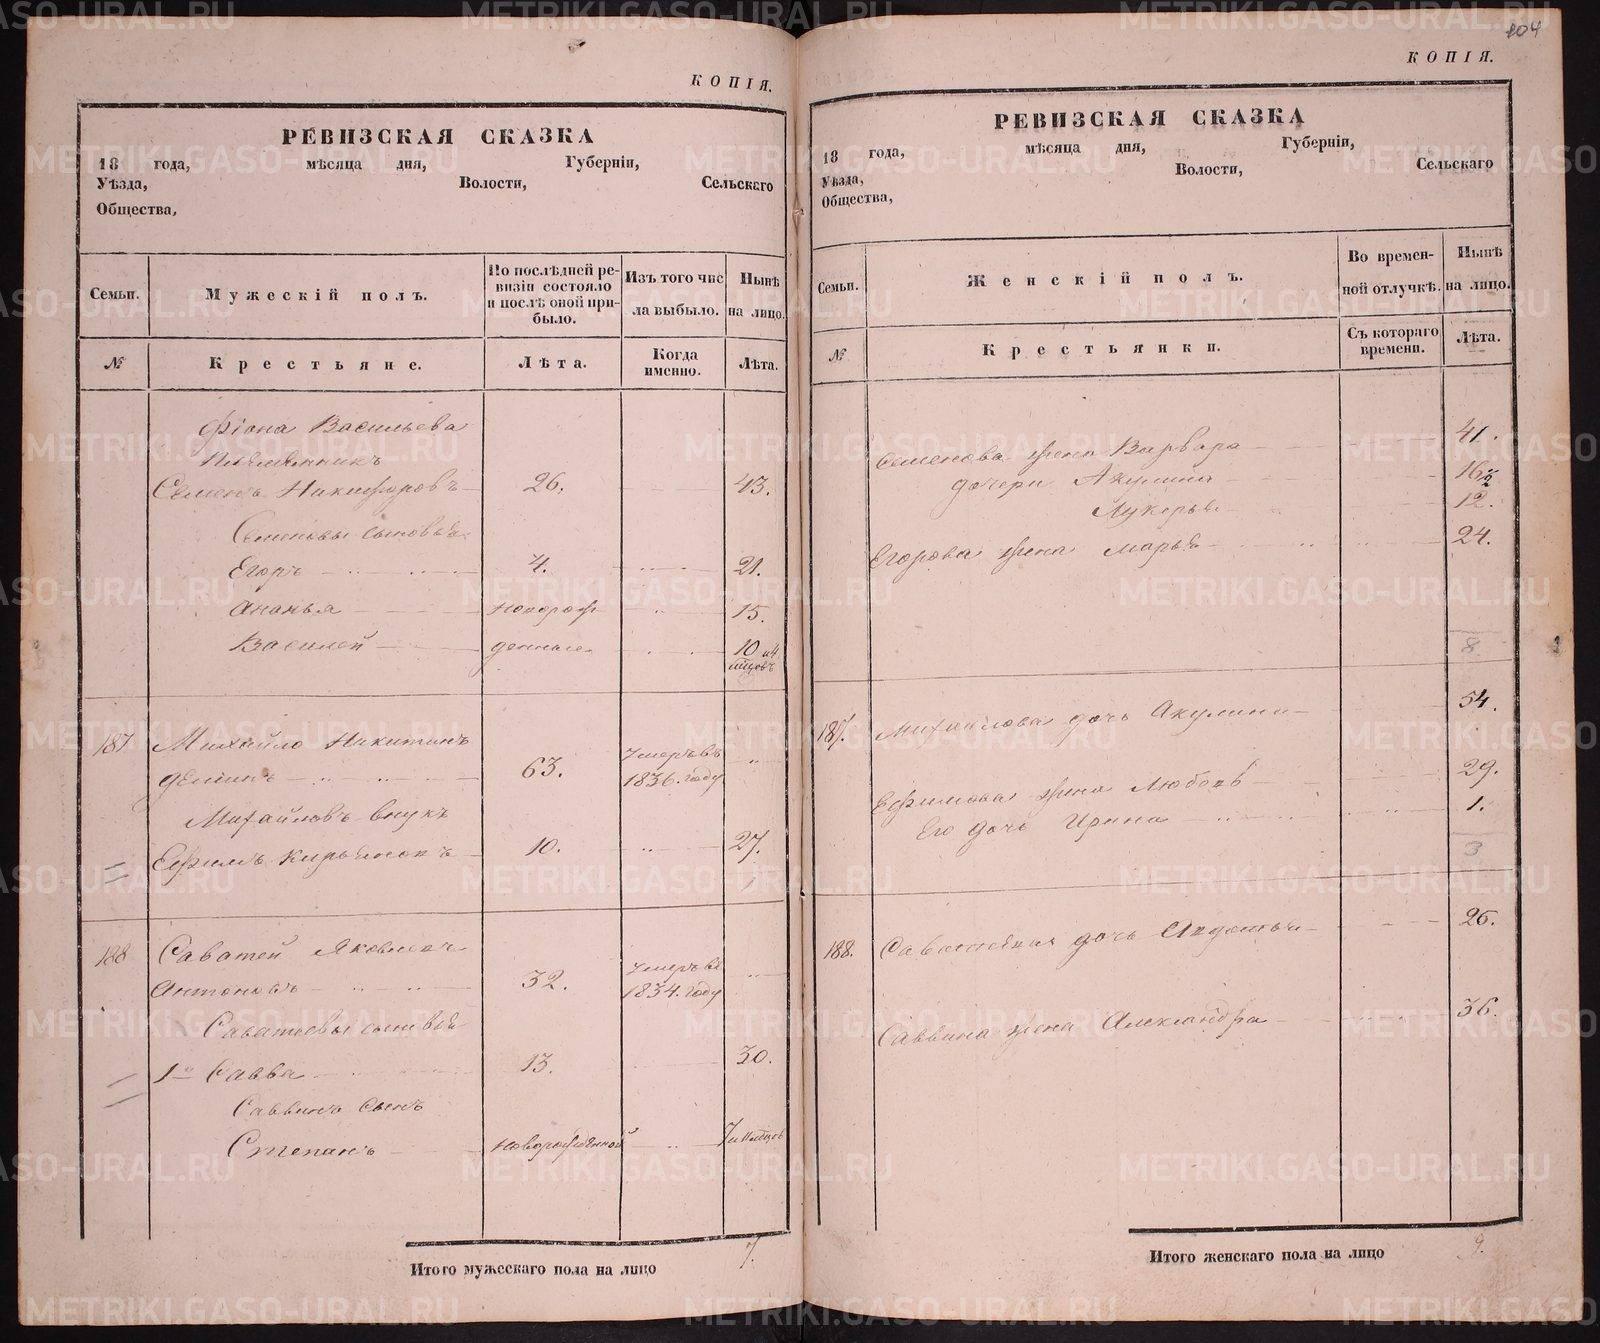 104
КОПІЯ.
РЕВИЗСКАЯ СКАЗКА
18 года, мѣсяца дня, Губерніи,
Уѣзда, Волости, Сельскаго
Общества,
Семьи.
Мужескій полъ.
По послѣдней ре-
визіи состояло
и послѣ оной при-
было.
Изъ того чис
ла выбыло.
Нынѣ
на лицо.
№
Крестьяне.
Лѣта.
Когда
именно.
Лѣта.
Фіона Васильева
Племянникъ
Семенъ Никифоровъ 26. 43.
Семеновы сыновья
Егоръ 4. 21.
Ананья новорож 15.
Василей денные 10 и 4
мѣсцовъ
187 Михайло Никитинъ Умеръ въ
Деминъ 63. 1836. году
Михайловъ внукъ
Ефимъ Кирьяновъ 10. 27.
188 Саватей Яковлевъ Умеръ въ
Антоновъ 32. 1834. году
Саватеевы сыновья
1й Савва 13. 30.
Саввинъ сынъ
Степанъ новорожденной 7 мѣсцовъ
Итого мужескаго пола на лицо 7.
КОПІЯ.
РЕВИЗСКАЯ СКАЗКА
18 года, мѣсяца дня, Губерніи,
Уѣзда, Волости, Сельскаго
Общества,
Семьи.
Женскій полъ.
Во времен-
ной отлучкѣ.
Нынѣ
на лицо.
№
Крестьянки.
Съ котораго
времени.
Лѣта.
Семенова жена Варвара 41.
дочери Акулина 16½
Лукерья 12.
Егорова жена Марья 24.
8
187. Михайлова дочь Акулина 54.
Ефимова жена Любовь 29.
Его дочь Ирина 1.
3
188. Саватеева дочь Авдотья 26.
Саввина жена Александра 36.
Итого женскаго пола на лицо 9.
METRIKI.GASO-URAL.RU